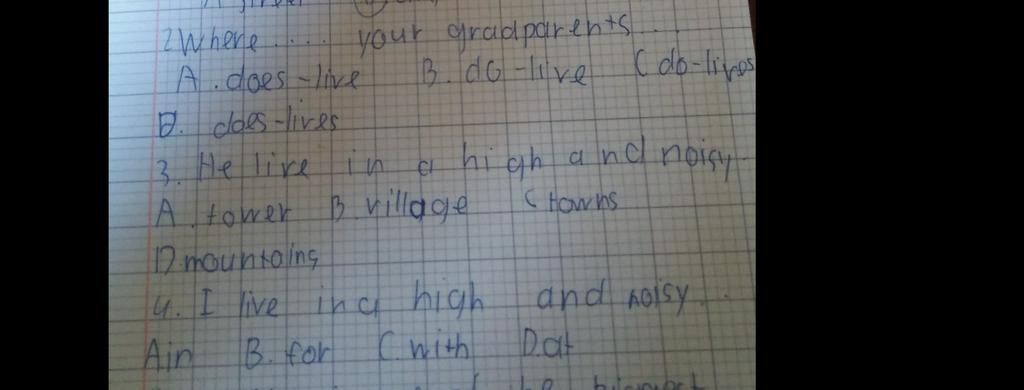 2 Where .... your gradparents
A. does-live B. do-live C do-lives
D. does-lives
3. He live in a high and noisy
A. tower B village C towns
D mountains
4. I live in a high and noisy ..
A in B. for C. with D at